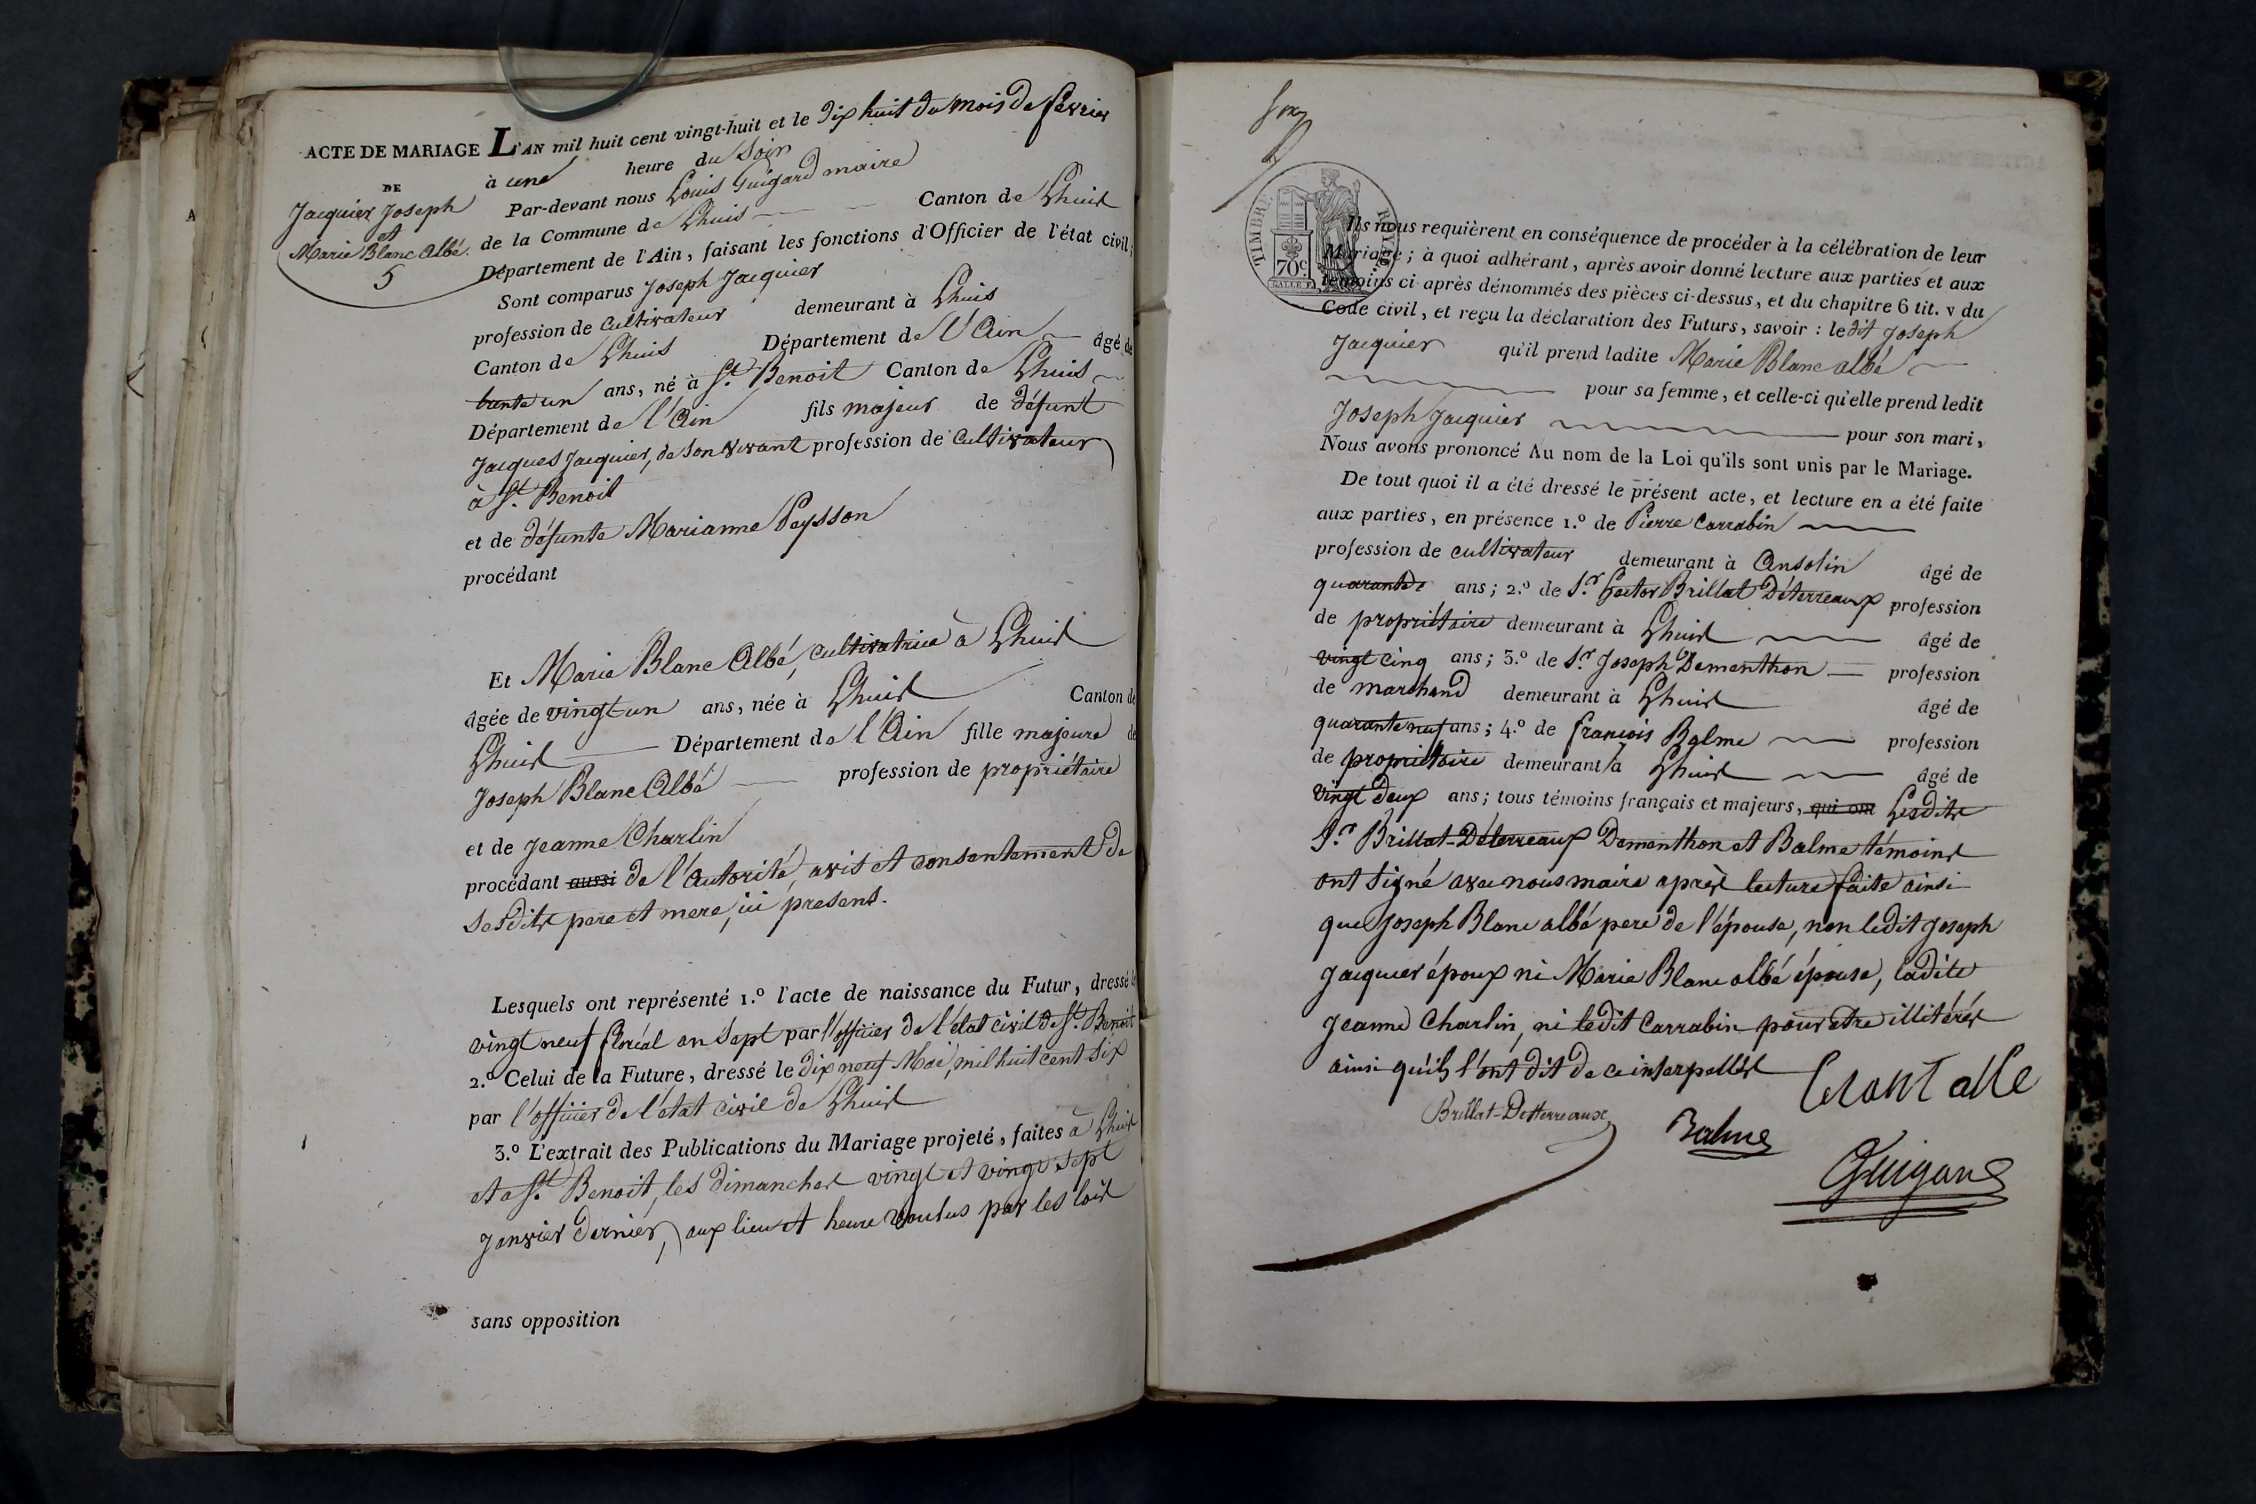 ACTE DE MARIAGE
DE
Jacquier Joseph
et
Marie Blanc Albé.
5
L'AN mil huit cent vingt-huit et le dix huit du mois de fevrier
à une heure du Soir
Par-devant nous Louis Guigard maire
de la Commune de Lhuis Canton de Lhuis
Département de l'Ain, faisant les fonctions d'Officier de l'état civil;
Sont comparus Joseph Jacquier
profession de Cultivateur demeurant à Lhuis
Canton de Lhuis Département de l'Ain âgé de
trente un ans, né à St. Benoit Canton de Lhuis
Département de l'Ain fils majeur de défunt
Jacques Jacquier, de son vivant profession de Cultivateur
à St. Benoit
et de défunte Marianne Peysson
procédant
Et Marie Blanc Albé, cultivatrice à Lhuis
âgée de vingt un ans, née à Lhuis Canton de
Lhuis Département de l'Ain fille majeure de
Joseph Blanc Albé profession de propriétaire
et de Jeanne Charlin
procédant aussi de l'autorité, avis et consentement de
sesdits pere et mere, ici present.
Lesquels ont représenté 1.º l'acte de naissance du Futur, dressé le
vingt neuf floréal an sept par l'officier de l'état civil de St. Benoit
2.º Celui de la Future, dressé le dix neuf Mai, mil huit cent six
par l'officier de l'état civil de Lhuis
3.º L'extrait des Publications du Mariage projeté, faites à Lhuis
et a St. Benoit, les dimanches vingt et vingt sept
janvier dernier, aux lieu et heure voulus par les lois
sans opposition
TIMBRE ROYAL
70c.
Ils nous requièrent en conséquence de procéder à la célébration de leur
Mariage; à quoi adhérant, après avoir donné lecture aux parties et aux
témoins ci-après dénommés des pièces ci-dessus, et du chapitre 6 tit. v du
Code civil, et reçu la déclaration des Futurs, savoir: ledit Joseph
Jacquier qu'il prend ladite Marie Blanc albé
pour sa femme, et celle-ci qu'elle prend ledit
Joseph Jacquier pour son mari,
Nous avons prononcé Au nom de la Loi qu'ils sont unis par le Mariage.
De tout quoi il a été dressé le présent acte, et lecture en a été faite
aux parties, en présence 1.º de Pierre Carrabin
profession de cultivateur demeurant à Ansolin âgé de
quarante ans; 2.º de Sr. hector Brillat Déterreaux profession
de propriétaire demeurant à Lhuis âgé de
vingt cinq ans; 3.º de Sr. Joseph Dementhon profession
de marchand demeurant à Lhuis âgé de
quarante neuf ans; 4.º de françois Balme profession
de propriétaire demeurant à Lhuis âgé de
vingt deux ans; tous témoins français et majeurs, qui ont Lesdits
Sr. Brillat-Déterreaux Dementhon et Balme témoins
ont signé avec nous maire après lecture faite ainsi
que Joseph Blanc albé pere de l'épouse, non ledit Joseph
Jacquier époux ni Marie Blanc albé épouse, ladite
Jeanne Charlin, ni ledit Carrabin pour etre illitérés
ainsi qu'ils l'ont dit de ce interpellés
Brillat-Detterreaux
Balme
Guigard